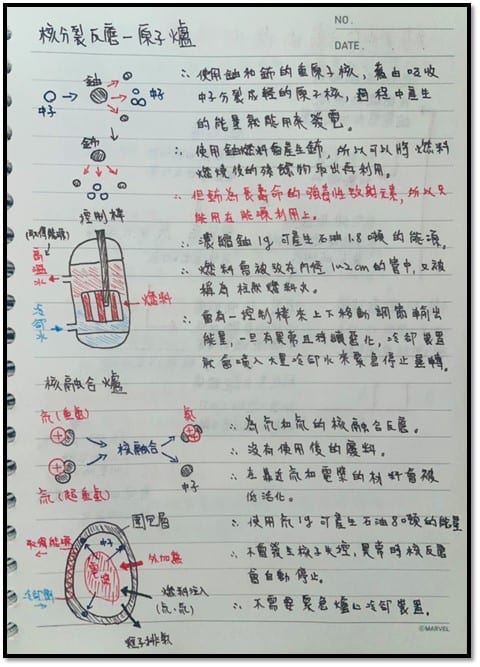 NO.
DATE.
核分裂反應-原子爐
鈾
中子
中子
鈽
∴ 使用鈾和鈽的重原子核,藉由吸收
中子分裂成輕的原子核,過程中產生
的能量就能用來發電。
∴ 使用鈾燃料會產生鈽,所以可以將燃料
燃燒後的殘餘物取出再利用。
∴ 但鈽為長壽命的強毒性放射元素,所以只
能用在能源利用上。
控制棒
(取得能源)
高溫水
冷卻水
燃料
∴ 濃縮鈾1g可產生石油1.8噸的能源。
∴ 燃料會被放在內徑1~2cm的管中,又被
稱為柱狀燃料丸。
∴ 會有一控制棒來上下移動調節輸出
能量,一旦有異常且持續惡化,冷卻裝置
就會噴入大量冷卻水來緊急停止運轉。
核融合爐
氘(重氫)
氦
核融合
中子
氚(超重氫)
∴ 為氘和氚的核融合反應。
∴ 沒有使用後的廢料。
∴ 在靠近氚和電漿的材料會被
低活化。
∴ 使用氘1g可產生石油80噸的能量
∴ 不會發生核子失控,異常時核反應
會自動停止。
∴ 不需要緊急爐心冷卻裝置。
取得能源
中子
外加熱
電漿
冷卻劑
燃料注入
(氘、氚)
粒子排氣
©MARVEL